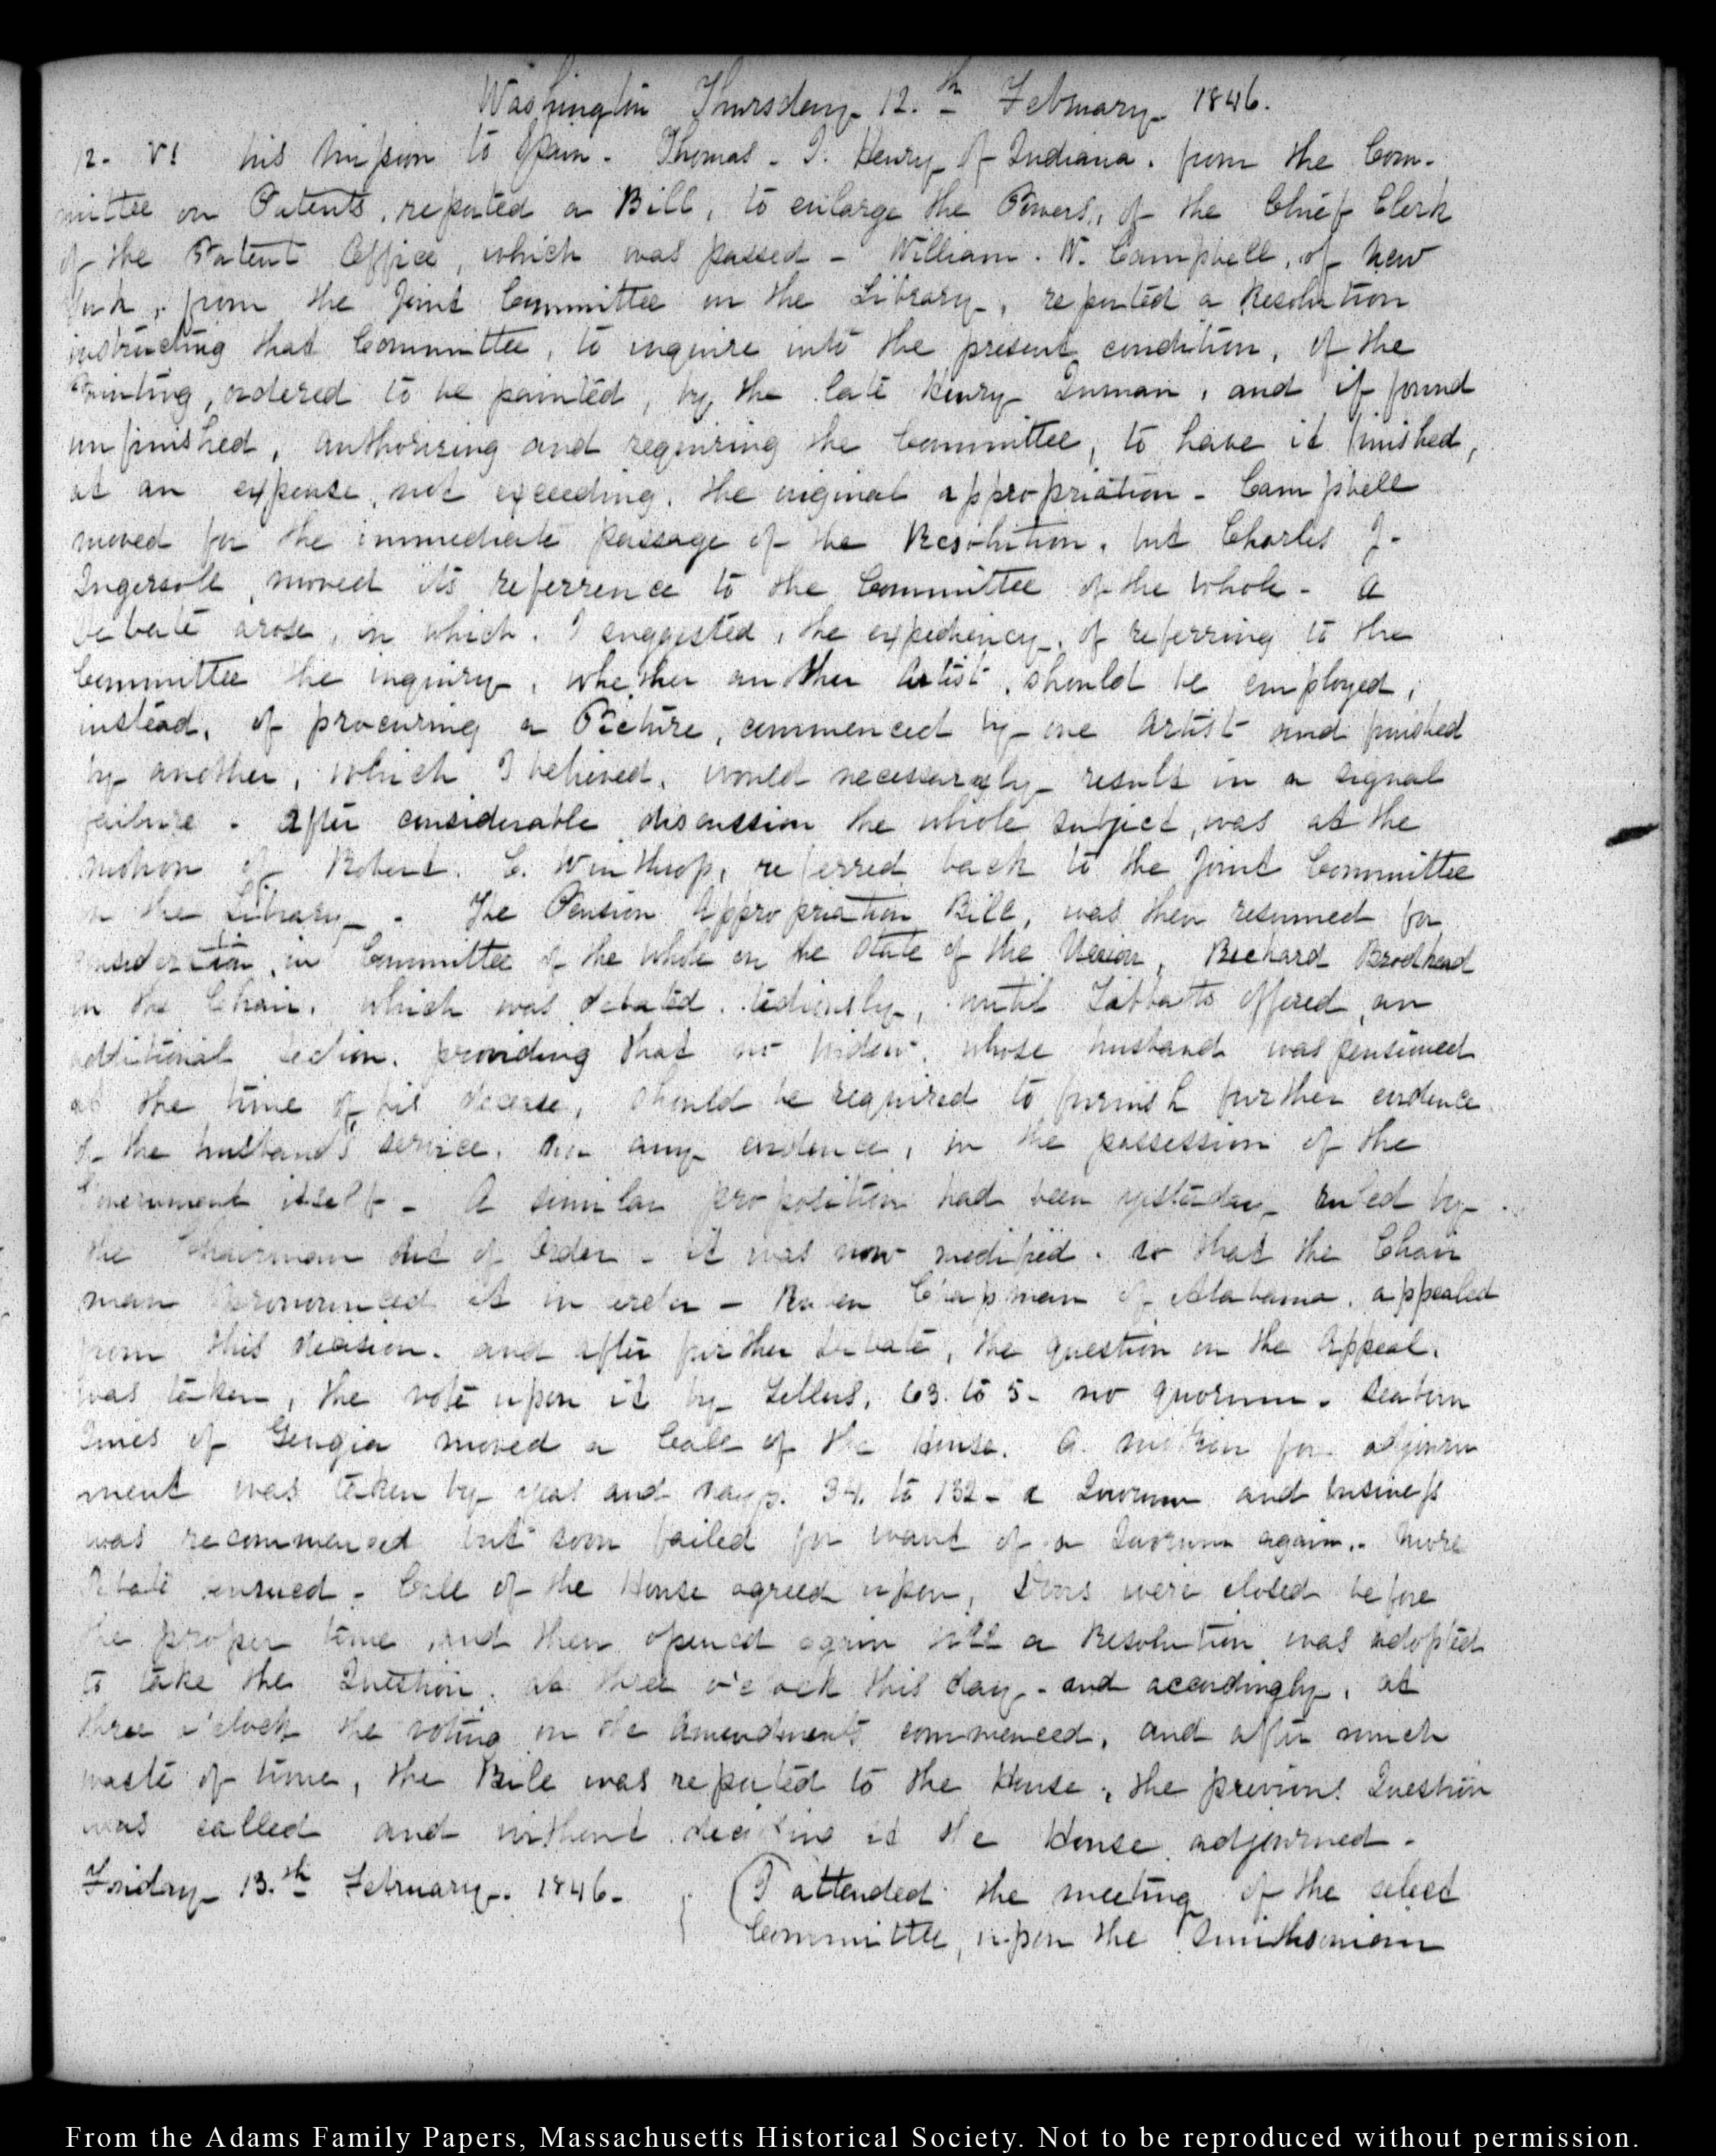 Washington Thursday 12.th February 1846.
12. VI. his mission to Spain. Thomas. J. Henry of Indiana. from the Com-
mittee on Patents, reported a Bill, to enlarge the Powers, of the Chief Clerk
of the Patent Office, which was passed - William. W. Campbell, of New
York, from the Joint Committee on the Library, reported a Resolution
instructing that Committee, to inquire into the present condition, of the
Painting, ordered to be painted, by the late Henry Inman, and if found
unfinished, authorizing and requiring the Committee, to have it finished,
at an expense, not exceeding, the original appropriation - Campbell
moved for the immediate passage of the Resolution, but Charles J.
Ingersoll, moved its referrence to the Committee of the Whole - A
debate arose, in which, I suggested, the expediency, of referring to the
Committee the inquiry, whether another Artist, should be employed,
instead, of procuring a Picture, commenced by one Artist and finished
by another, which I believed, would necessarily result in a signal
failure. After considerable discussion the whole subject, was at the
motion of Robert. C. Winthrop, referred back to the Joint Committee
on the Library. The Pension Appropriation Bill, was then resumed for
consideration, in Committee of the Whole on the State of the Union, Richard Brodhead
in the Chair. which was debated. tediously, until Tibbatts offered, an
additional section. providing that no widow. whose husband was pensioned
at the time of his decease, should be required to furnish further evidence
of the husband's service. than any evidence, in the possession of the
Government itself - A similar proposition had been yesterday ruled by
the Chairman out of Order - it was now modified. so that the Chair
man pronounced it in order - Reuben Chapman of Alabama. appealed
from this decision. and after further debate, the question on the Appeal.
was taken, the vote upon it by Tellers, 63. to 5 - no quorum. Seaborn
Jones of Georgia moved a Call of the House. A motion for adjourn
ment was taken by yeas and nays. 34. to 132 - a Quorum and business
was recommenced but soon failed for want of a Quorum again. More
Debate ensued - Call of the House agreed upon, Doors were closed before
the proper time, and then opened again till a Resolution was adopted
to take the Question. at three o'clock this day - and accordingly, at
three o'clock the voting on the Amendments commenced, and after much
waste of time, the Bill was reported to the House, the previous Question
was called and without deciding it the House adjourned -
Friday 13.th February. 1846. I attended the meeting of the select
Committee, upon the Smithsonian
From the Adams Family Papers, Massachusetts Historical Society. Not to be reproduced without permission.